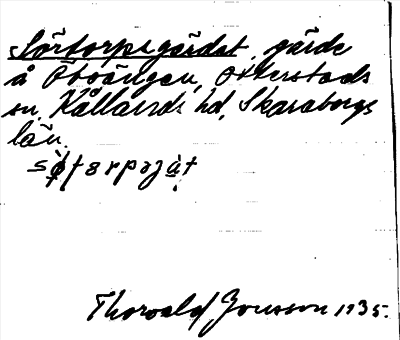 Sörtorpsgärdet, gärde
å Öboängen, Otterstads
sn, Kållands hd, Skaraborgs
län.
Thorvald Jonsson 1935.